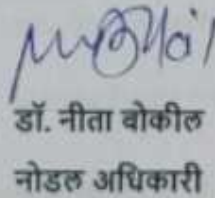 डॉ. नीता बोकील
नोडल अधिकारी